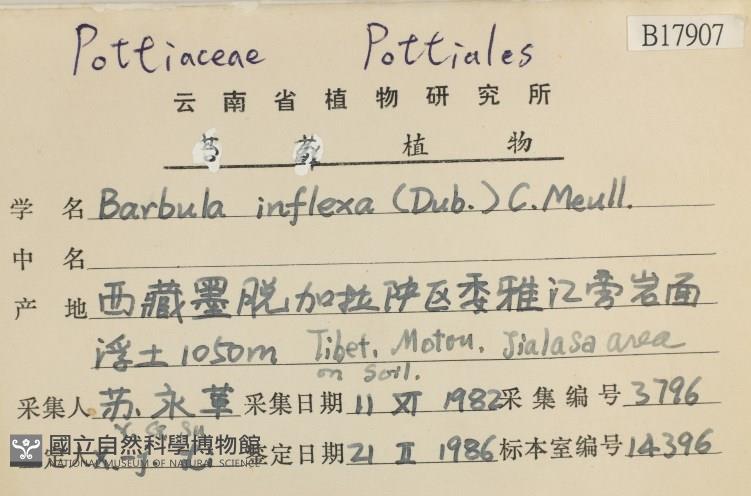 Pottiaceae Pottiales B17907
云南省植物研究所
苔藓植物
学名 Barbula inflexa (Dub.) C. Meull.
中名
产地 西藏墨脱加拉陕区委雅江旁岩面
浮土 1050m Tibet, Motou, Jialasa area
on soil.
采集人 苏永革 采集日期 11 XI 1982 采集编号 3796
Y. G. Su
國立自然科學博物館
NATIONAL MUSEUM OF NATURAL SCIENCE
鉴定日期 21 II 1986 标本室编号 14396